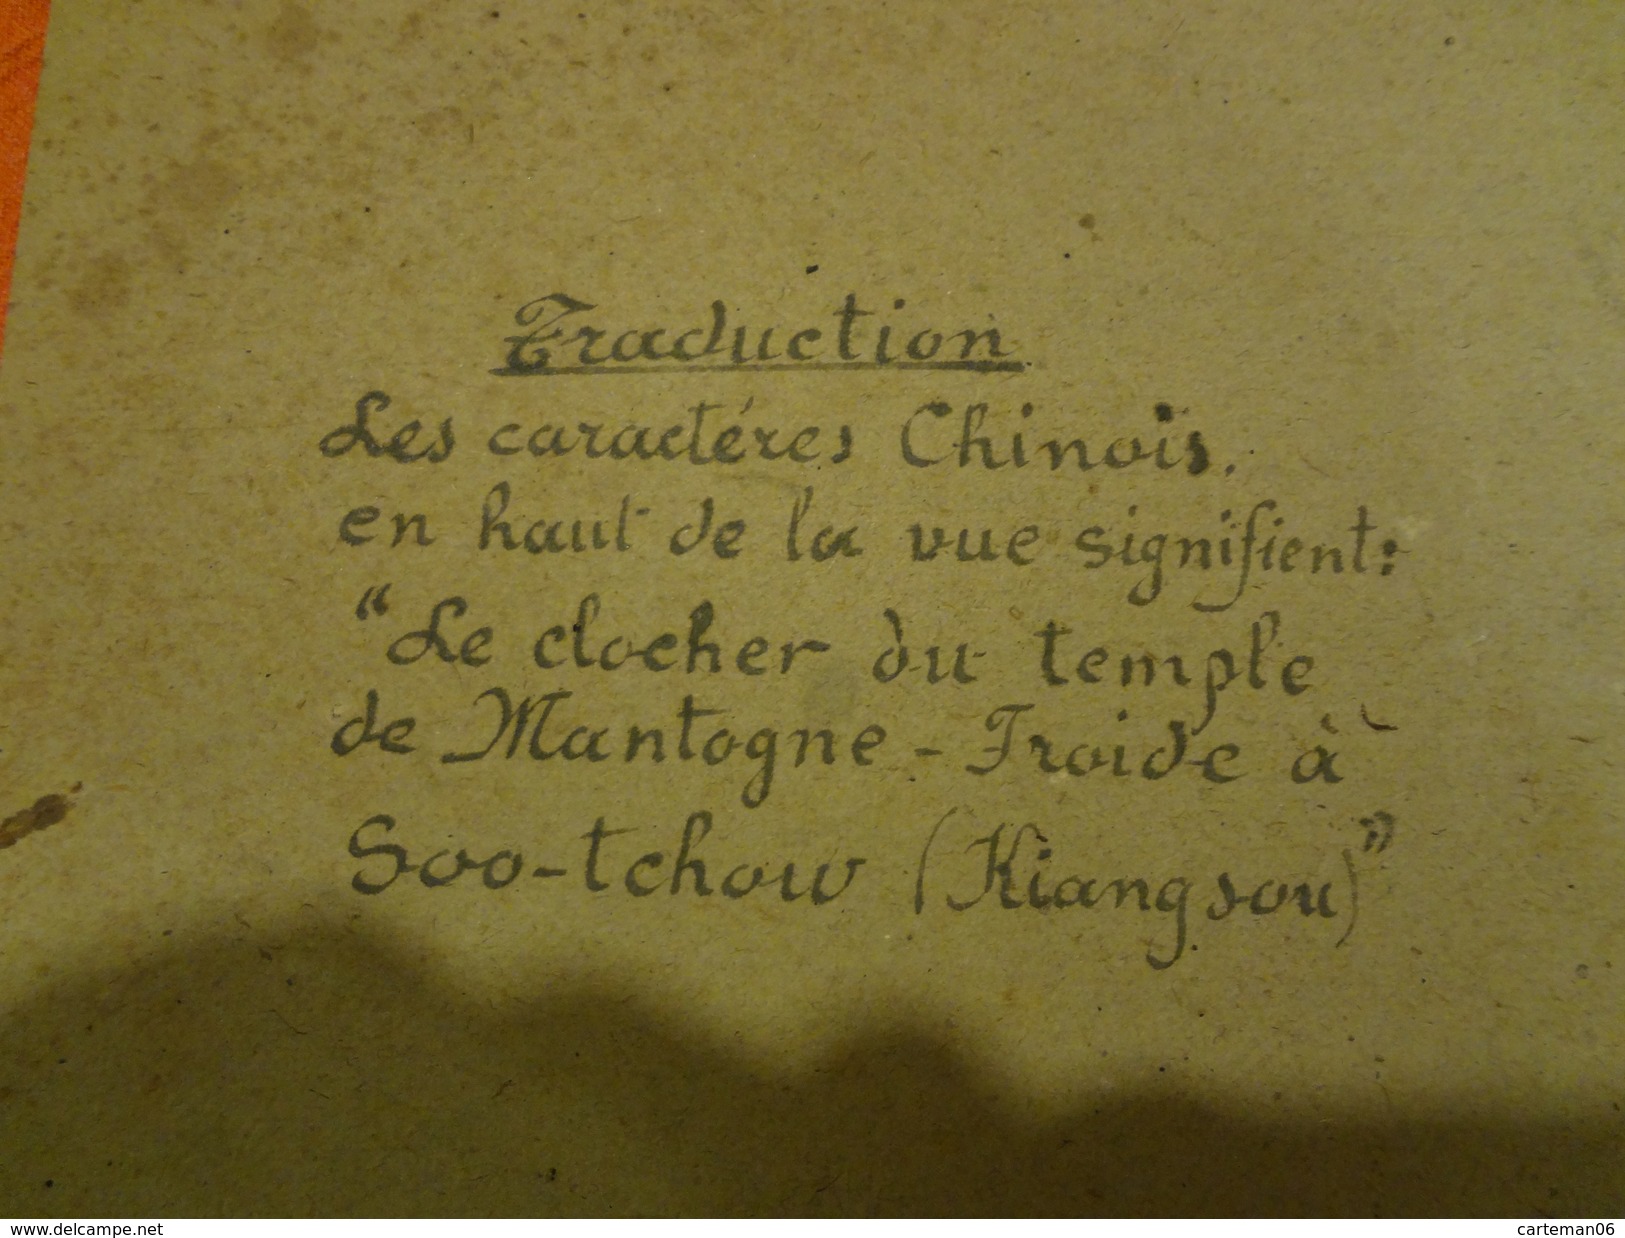 Traduction
Les caractéres Chinois.
en haut de la vue signifient:
"Le clocher du temple
de Mantogne-Froide à
Soo-tchow (Kiangsou)"
www.delcampe.net
carteman06